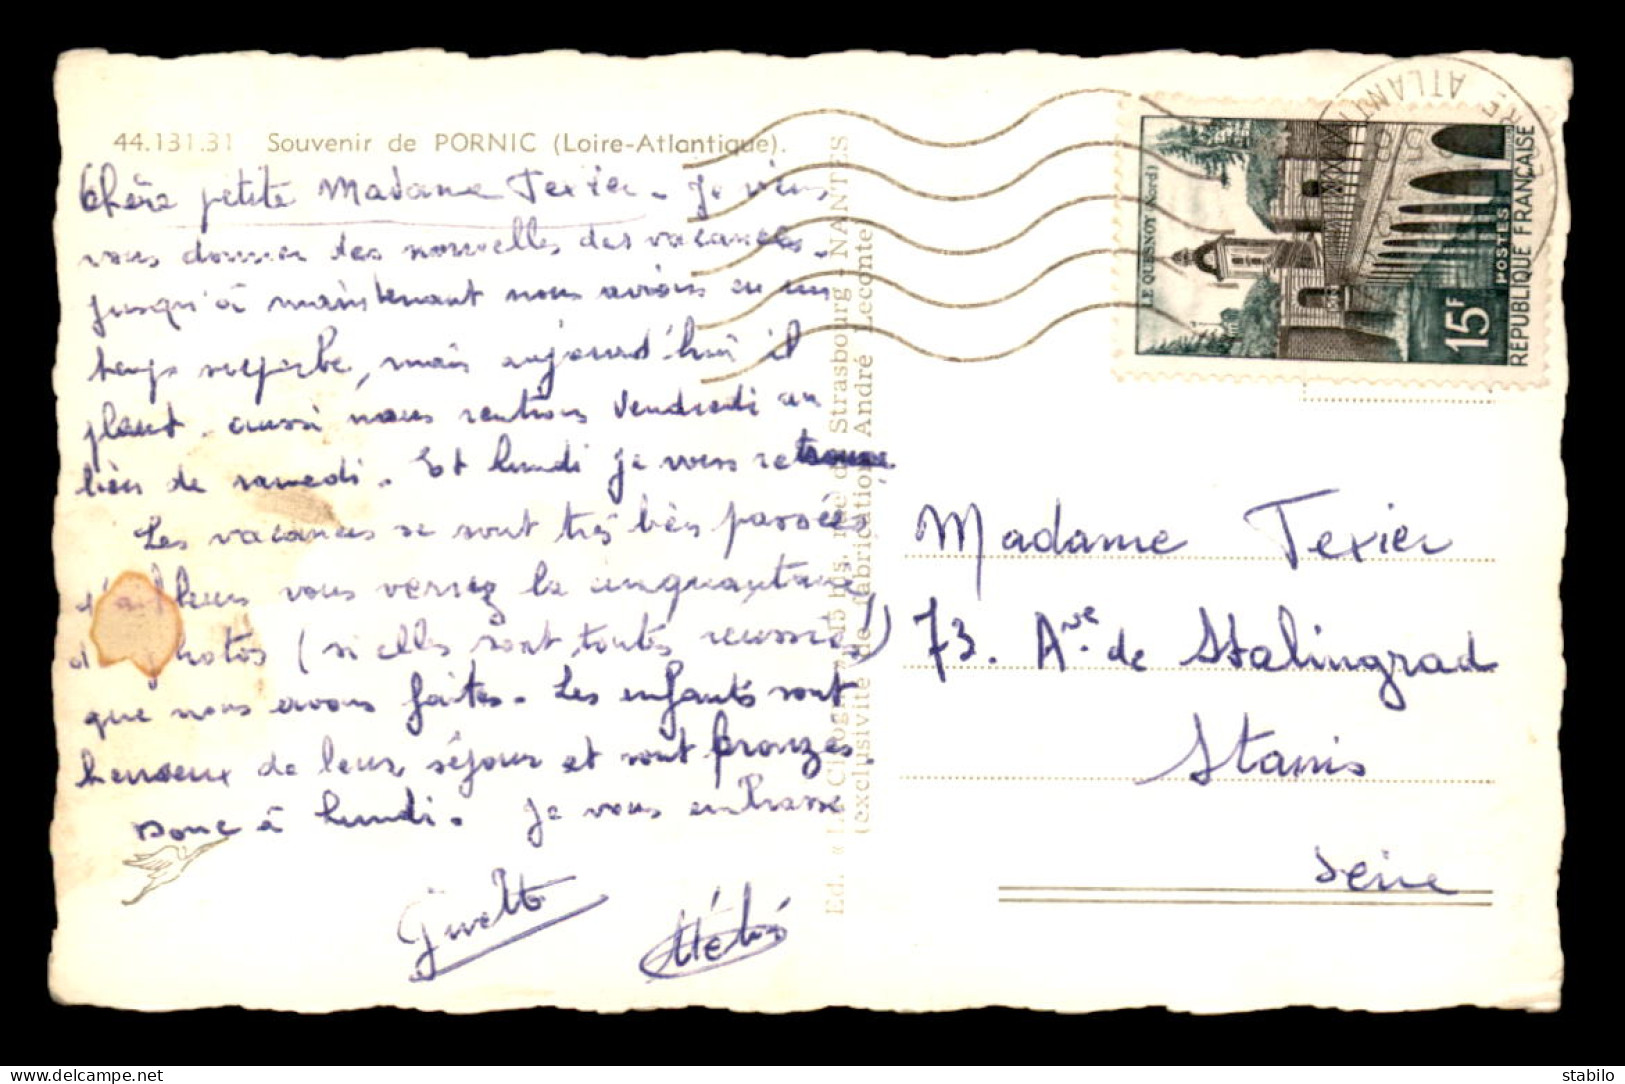 44.131.31 Souvenir de PORNIC (Loire-Atlantique).
Chère petite Madame Texier. Je viens
vous donner des nouvelles des vacances.
jusqu'à maintenant nous avions eu un
temps superbe, mais aujourd'hui il
pleut, aussi nous rentrons Vendredi au
lieu de samedi. Et lundi je vous retrouve
Les vacances se sont très bien passées
d'ailleurs vous verrez la cinquantaine
photos (si elles sont toutes reussies!)
que nous avons faites. Les enfants sont
heureux de leur séjour et sont bronzés.
Donc à lundi. Je vous embrasse
Ginette
Ed. « La Cigogne » 15 bis, rue de Strasbourg - NANTES
(exclusivité de fabrication André Leconte)
LE QUESNOY (Nord)
15F
POSTES
RÉPUBLIQUE FRANÇAISE
LOIRE ATLANTIQUE
Madame Texier
73. Ave. de Stalingrad
Stains
Seine
stabilo